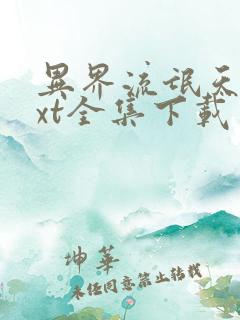 異界流氓天
xt全集下載
坤華
未經同意禁止轉載